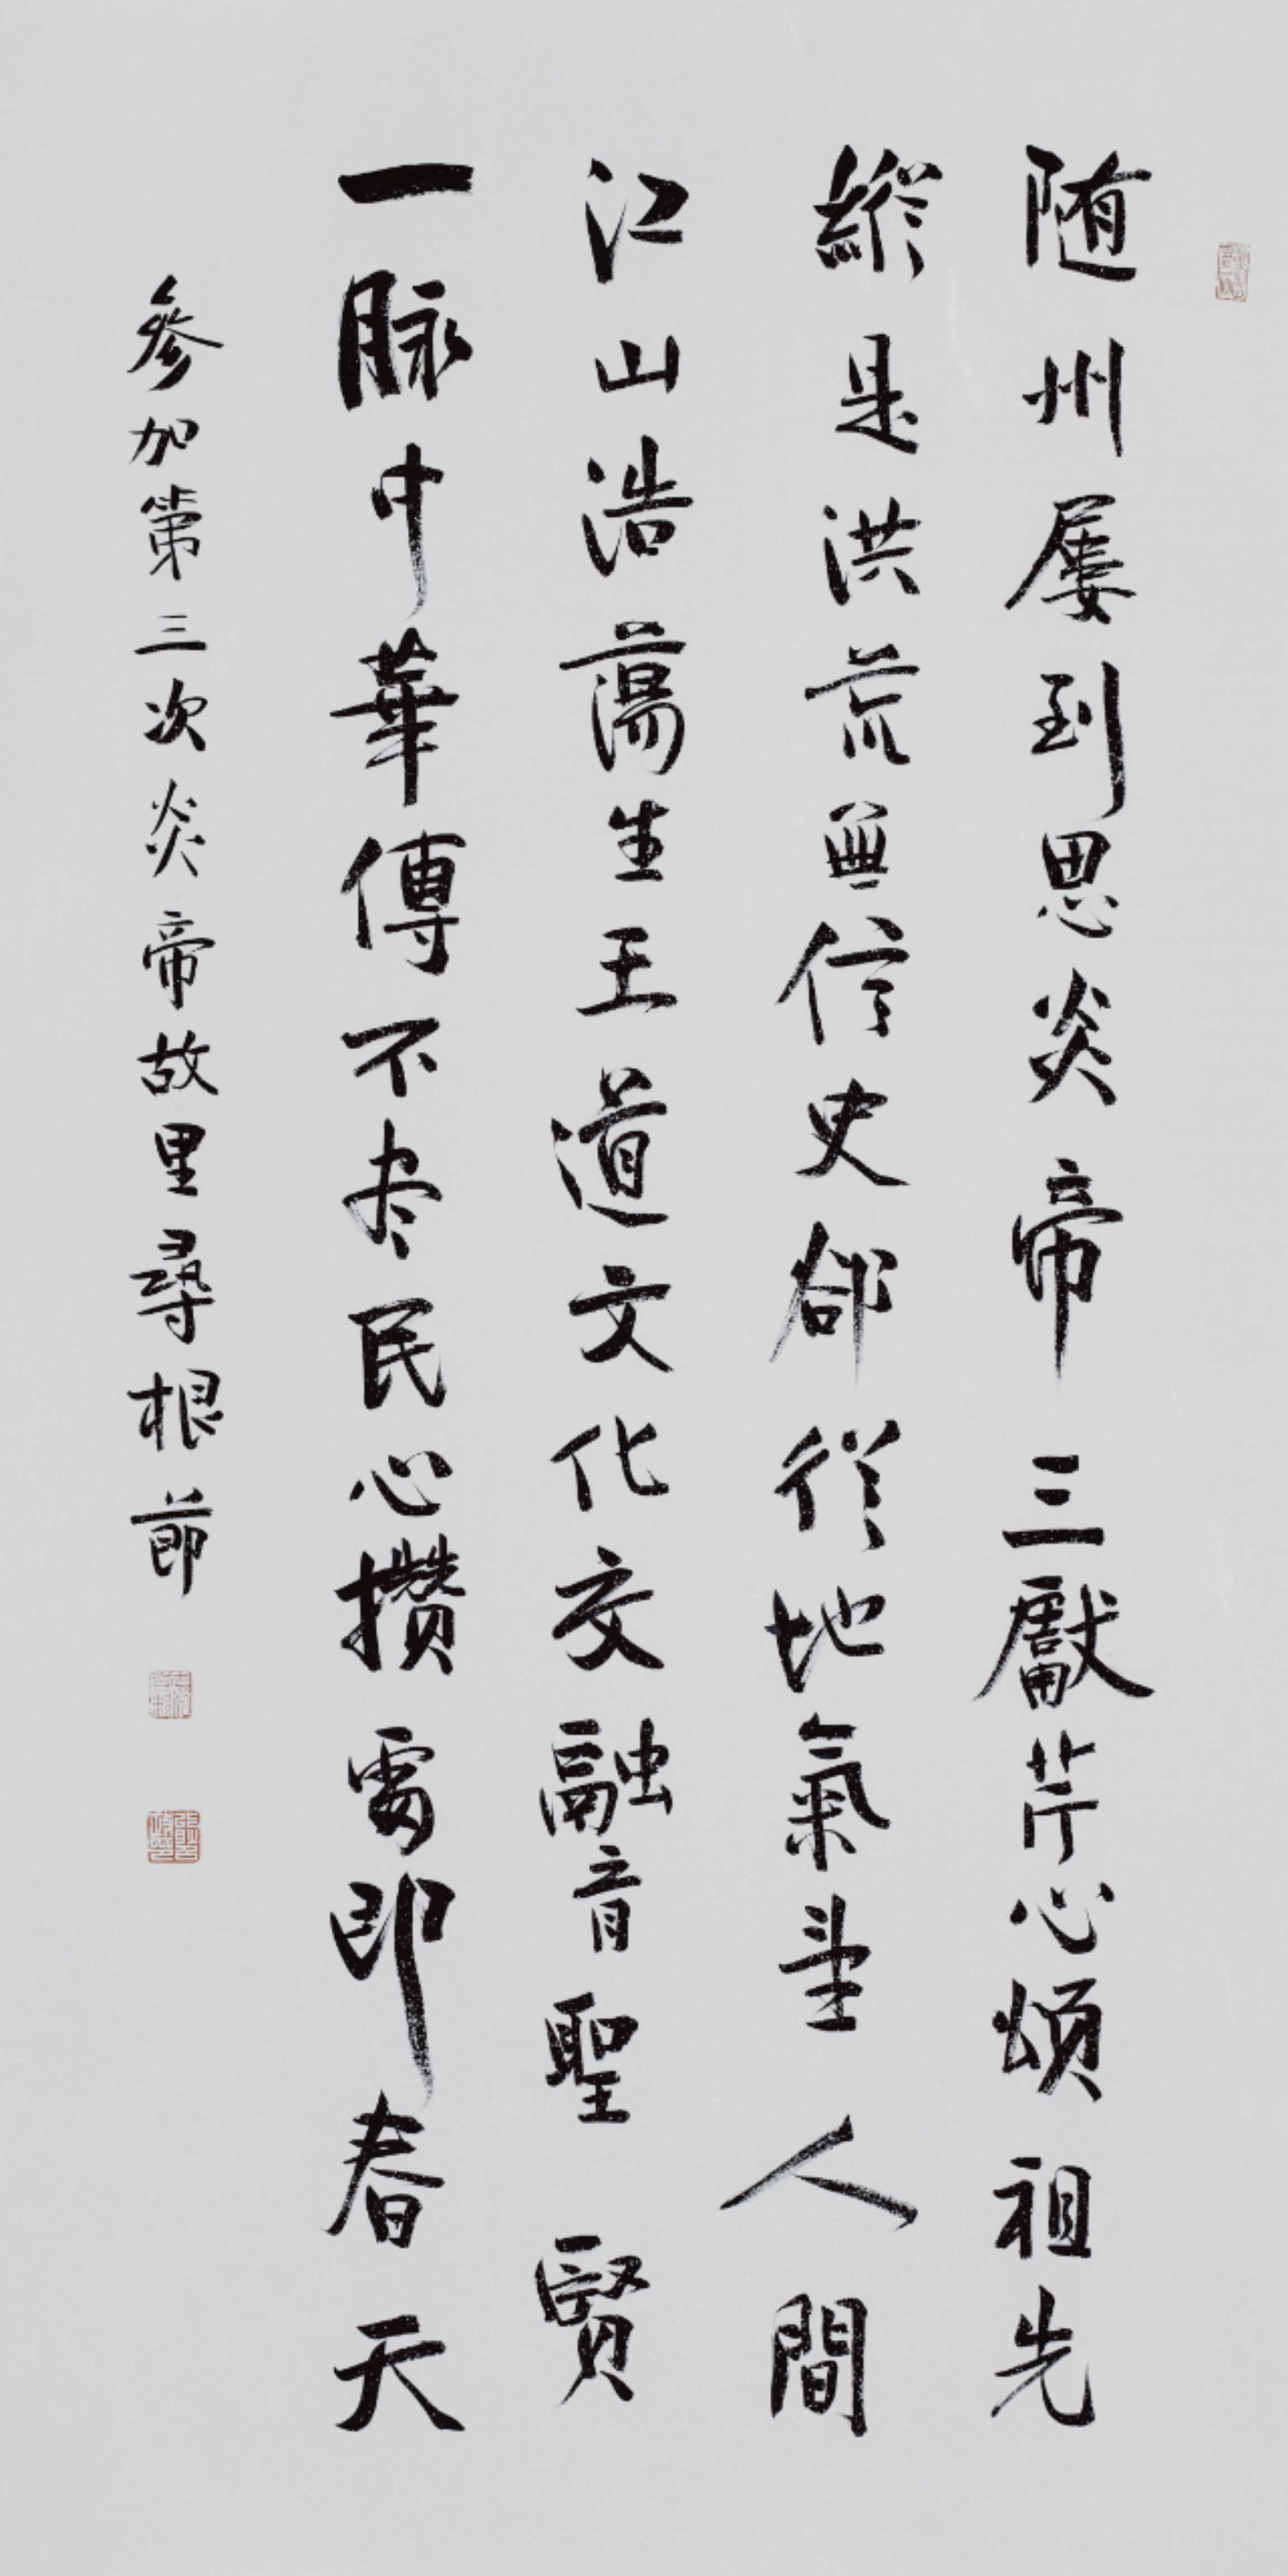 随州屢到思炎帝三獻芹心頌祖先
縱是洪荒無信史卻從地氣望人間
江山浩蕩生王道文化交融育聖賢
一脉中華傳不尽民心攢處即春天
參加第三次炎帝故里尋根節